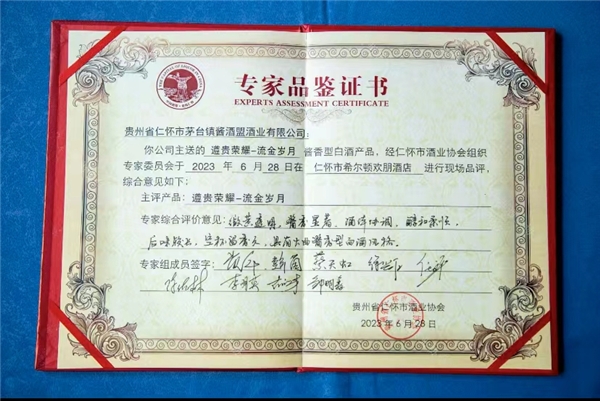 专家品鉴证书
EXPERTS ASSESSMENT CERTIFICATE
贵州省仁怀市茅台镇酱酒盟酒业有限公司：
你公司主送的 遵贵荣耀-流金岁月 酱香型白酒产品，经仁怀市酒业协会组织
专家委员会于 2023 年 6 月 28 日在 仁怀市希尔顿欢朋酒店 进行现场品评，
综合意见如下：
主评产品：遵贵荣耀-流金岁月
专家综合评价意见：微黄透明，酱香显著，酒体协调，醇和柔顺，
后味较长，空杯留香久，具有大曲酱香型白酒风格。
专家组成员签字：
贵州省仁怀市酒业协会
2023 年 6 月 28 日